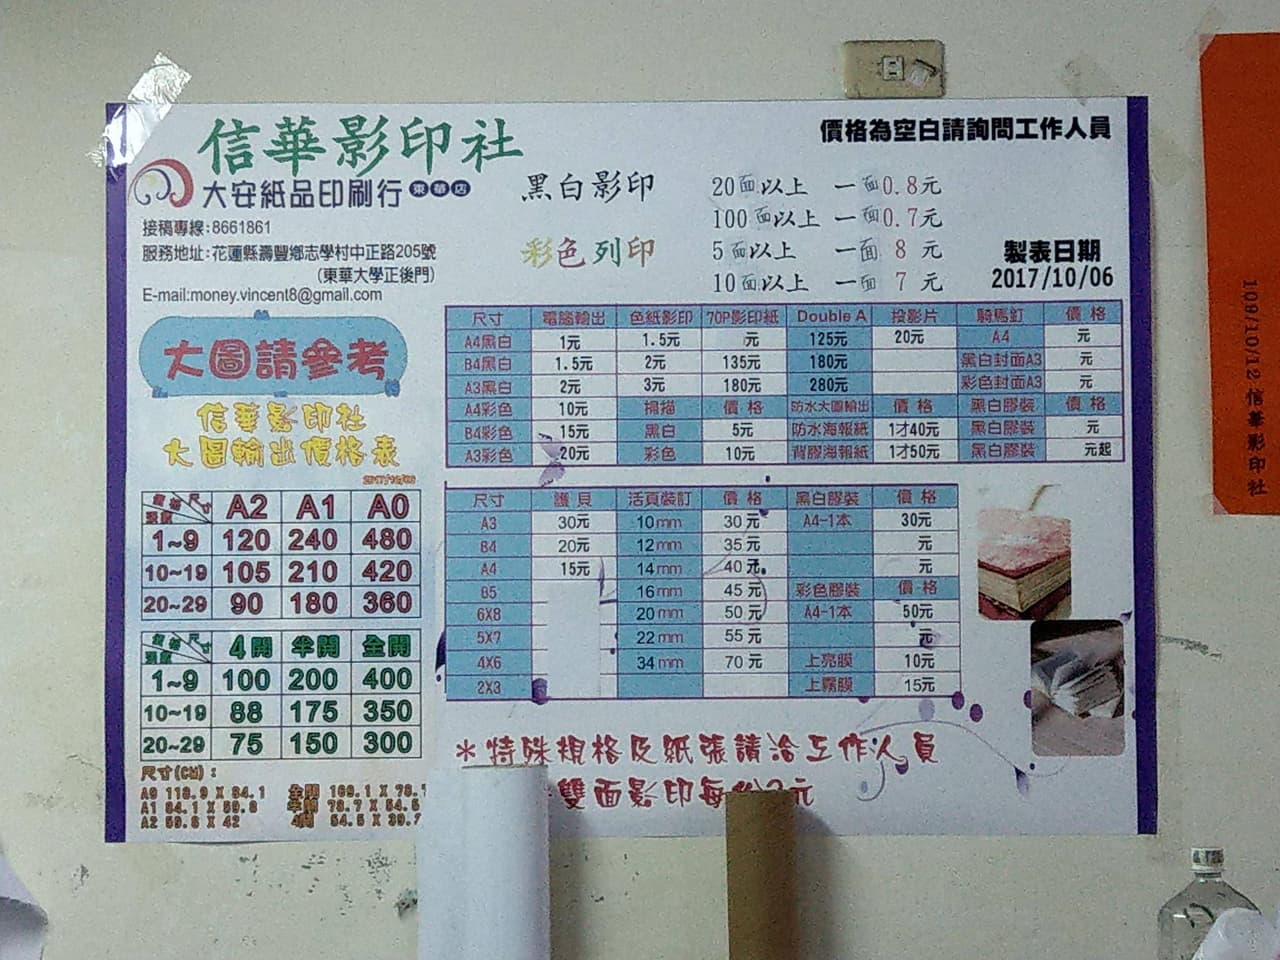 信華影印社
大安紙品印刷行 東華店
接稿專線:8661861
服務地址:花蓮縣壽豐鄉志學村中正路205號
(東華大學正後門)
E-mail:money.vincent8@gmail.com
價格為空白請詢問工作人員
黑白影印 20面以上 一面0.8元
100面以上 一面0.7元
彩色列印 5面以上 一面 8 元
10面以上 一面 7 元
製表日期
2017/10/06
大圖請參考
信華影印社
大圖輸出價格表
2017/10/06
規格 尺寸 張數 A2 A1 A0
1~9 120 240 480
10~19 105 210 420
20~29 90 180 360
規格 尺寸 張數 4開 半開 全開
1~9 100 200 400
10~19 88 175 350
20~29 75 150 300
尺寸(CM):
A0 118.9 X 84.1
A1 84.1 X 59.8
A2 59.8 X 42
全開 109.1 X 78.
半開 78.7 X 54.5
4開 54.5 X 39.
尺寸 電腦輸出 色紙影印 70P影印紙 Double A 投影片 騎馬釘 價 格
A4黑白 1元 1.5元 元 125元 20元 A4 元
B4黑白 1.5元 2元 135元 180元 黑白封面A3 元
A3黑白 2元 3元 180元 280元 彩色封面A3 元
A4彩色 10元 掃描 價 格 防水大圖輸出 價 格 黑白膠裝 價 格
B4彩色 15元 黑白 5元 防水海報紙 1才40元 黑白膠裝 元
A3彩色 20元 彩色 10元 背膠海報紙 1才50元 黑白膠裝 元起
尺寸 護 貝 活頁裝訂 價 格 黑白膠裝 價 格
A3 30元 10mm 30元 A4-1本 30元
B4 20元 12mm 35元 元
A4 15元 14mm 40元 元
B5 16mm 45元 彩色膠裝 價 格
6X8 20mm 50元 A4-1本 50元
5X7 22mm 55元 元
4X6 34mm 70元 上亮膜 10元
2X3 上霧膜 15元
*特殊規格及紙張請洽工作人員
雙面影印每份2元
109/10/12 信華影印社